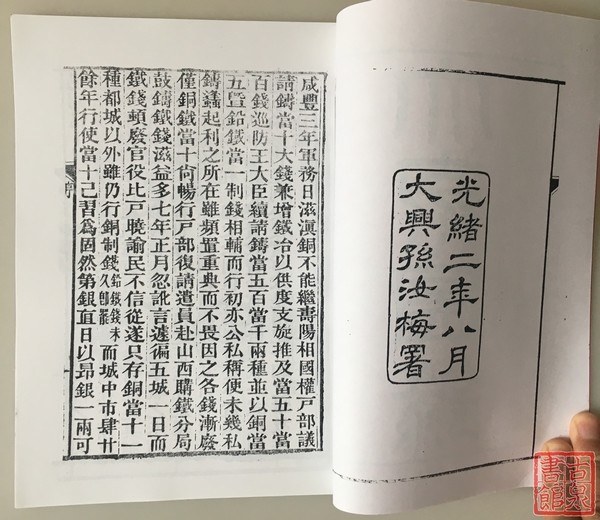 光緒二年八月
大興孫汝梅署
咸豐三年軍務日滋滇銅不能繼壽陽相國權戶部議
請鑄當十大錢兼增鐵冶以供度支旋推及當五十當
百錢巡防王大臣續請鑄當五百當千兩種並以銅當
五暨鉛鐵當一制錢相輔而行初亦公私稱便未幾私
鑄蠭起利之所在雖頻置重典而不畏因之各錢漸廢
僅銅鐵當十尙暢行戶部復請遣員赴山西購鐵分局
鼓鑄鐵錢滋益多七年正月忽訛言遽徧五城一日而
鐵錢頓廢官役比戶曉諭民不信從遂只存銅當十一
種都城以外雖仍行銅制錢鉛鐵錢未久卽罷而城中市肆廿
餘年行使當十己習爲固然第銀直日以昂銀一兩可
序
古泉書館